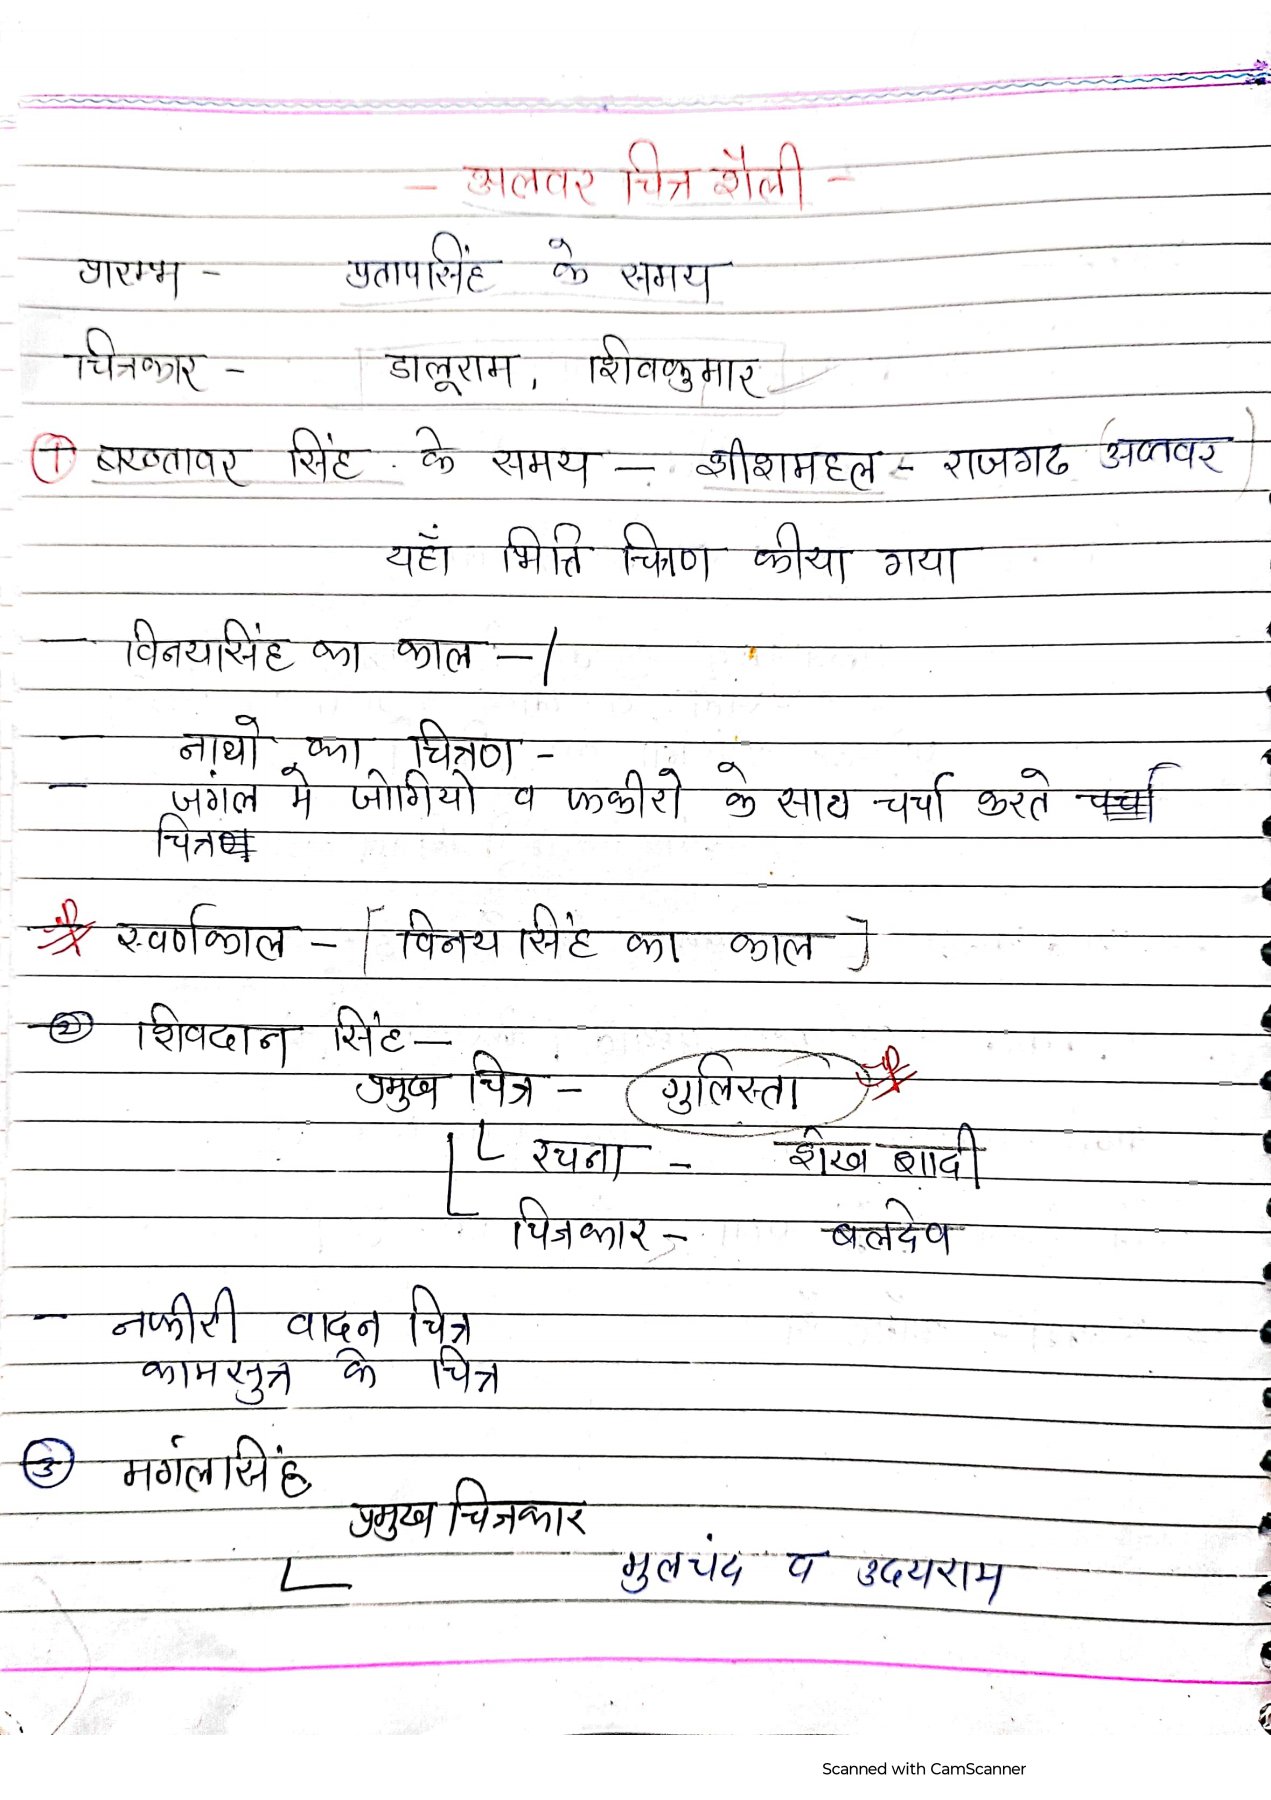 - अलवर चित्र शैली -
प्रारम्भ - प्रतापसिंह के समय
चित्रकार - डालूराम, शिवकुमार
① बख्तावर सिंह के समय - शीशमहल - राजगढ (अलवर)
यहाँ भित्ति चित्रण कीया गया
- विनयसिंह का काल -
- नाथो का चित्रण -
- जगंल मे जोगियो व फकीरो के साथ चर्चा करते
चित्र
स्वर्णकाल - [विनय सिंह का काल]
② शिवदान सिंह -
प्रमुख चित्र - गुलिस्ता
रचना - शेख शादी
चित्रकार - बलदेव
- नफीरी वादन चित्र
कामसुत्र के चित्र
③ मगंलसिंह
प्रमुख चित्रकार
मुलचंद व उदयराम
Scanned with CamScanner